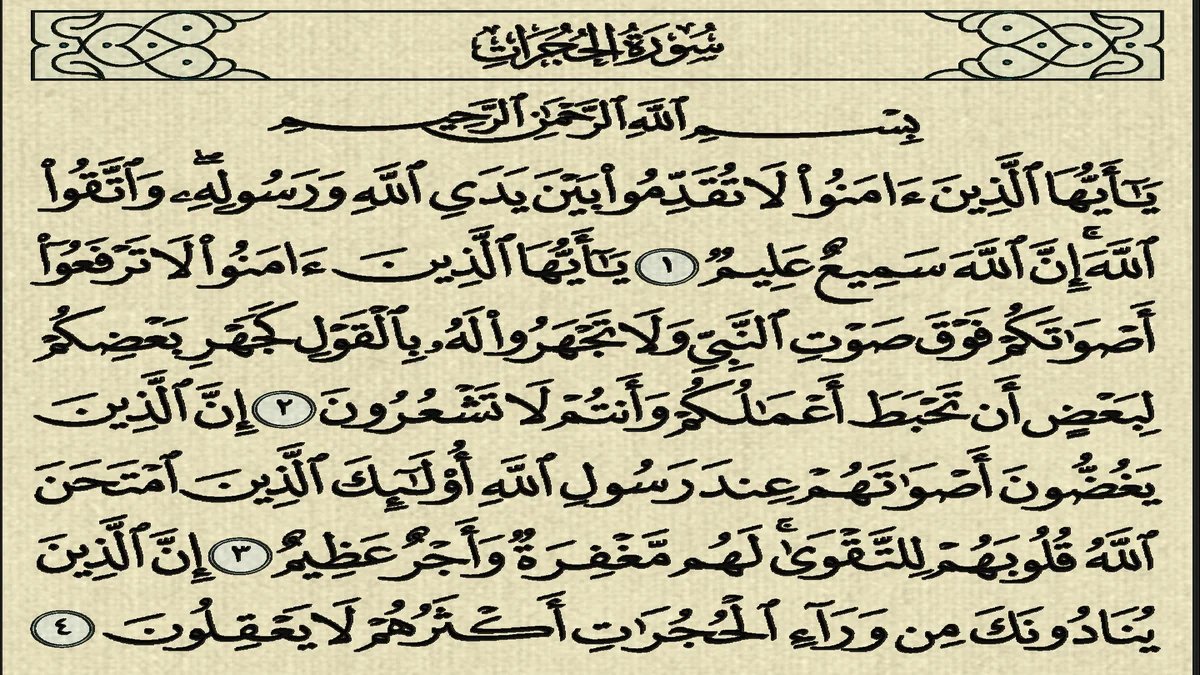 سُورَةُ الحُجُرَاتِ
بِسْمِ ٱللَّهِ ٱلرَّحْمَٰنِ ٱلرَّحِيمِ
يَٰٓأَيُّهَا ٱلَّذِينَ ءَامَنُوا۟ لَا تُقَدِّمُوا۟ بَيْنَ يَدَىِ ٱللَّهِ وَرَسُولِهِۦۖ وَٱتَّقُوا۟
ٱللَّهَۚ إِنَّ ٱللَّهَ سَمِيعٌ عَلِيمٌ ١ يَٰٓأَيُّهَا ٱلَّذِينَ ءَامَنُوا۟ لَا تَرْفَعُوٓا۟
أَصْوَٰتَكُمْ فَوْقَ صَوْتِ ٱلنَّبِىِّ وَلَا تَجْهَرُوا۟ لَهُۥ بِٱلْقَوْلِ كَجَهْرِ بَعْضِكُمْ
لِبَعْضٍ أَن تَحْبَطَ أَعْمَٰلُكُمْ وَأَنتُمْ لَا تَشْعُرُونَ ٢ إِنَّ ٱلَّذِينَ
يَغُضُّونَ أَصْوَٰتَهُمْ عِندَ رَسُولِ ٱللَّهِ أُو۟لَٰٓئِكَ ٱلَّذِينَ ٱمْتَحَنَ
ٱللَّهُ قُلُوبَهُمْ لِلتَّقْوَىٰۚ لَهُم مَّغْفِرَةٌ وَأَجْرٌ عَظِيمٌ ٣ إِنَّ ٱلَّذِينَ
يُنَادُونَكَ مِن وَرَآءِ ٱلْحُجُرَٰتِ أَكْثَرُهُمْ لَا يَعْقِلُونَ ٤